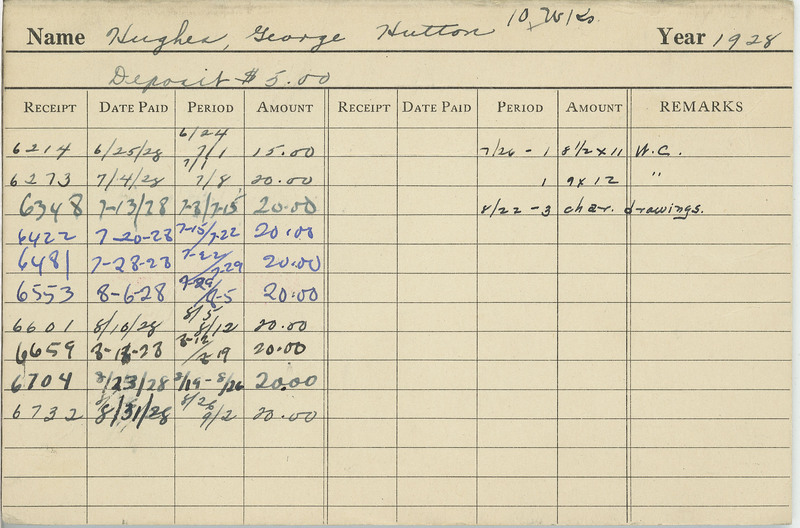 Name Hughes, George Hutton 10 Wks. Year 1928
Deposit $5.00
RECEIPT DATE PAID PERIOD AMOUNT RECEIPT DATE PAID PERIOD AMOUNT REMARKS
6214 6/25/28 6/24 7/1 15.00 7/26 - 1 8 1/2 x 11 W.C.
6273 7/4/28 7/1 7/8 20.00 1 9 x 12 "
6348 7-13/28 7-8/7-15 20.00 8/22 - 3 char. drawings.
6422 7-20-28 7-15/7-22 20.00
6481 7-28-28 7-22/7-29 20.00
6553 8-6-28 7-29/8-5 20.00
6601 8/10/28 8/5 8/12 20.00
6659 8-18-28 8-12/8-19 20.00
6704 8/23/28 8/19-8/26 20.00
6732 8/31/28 8/26 9/2 20.00